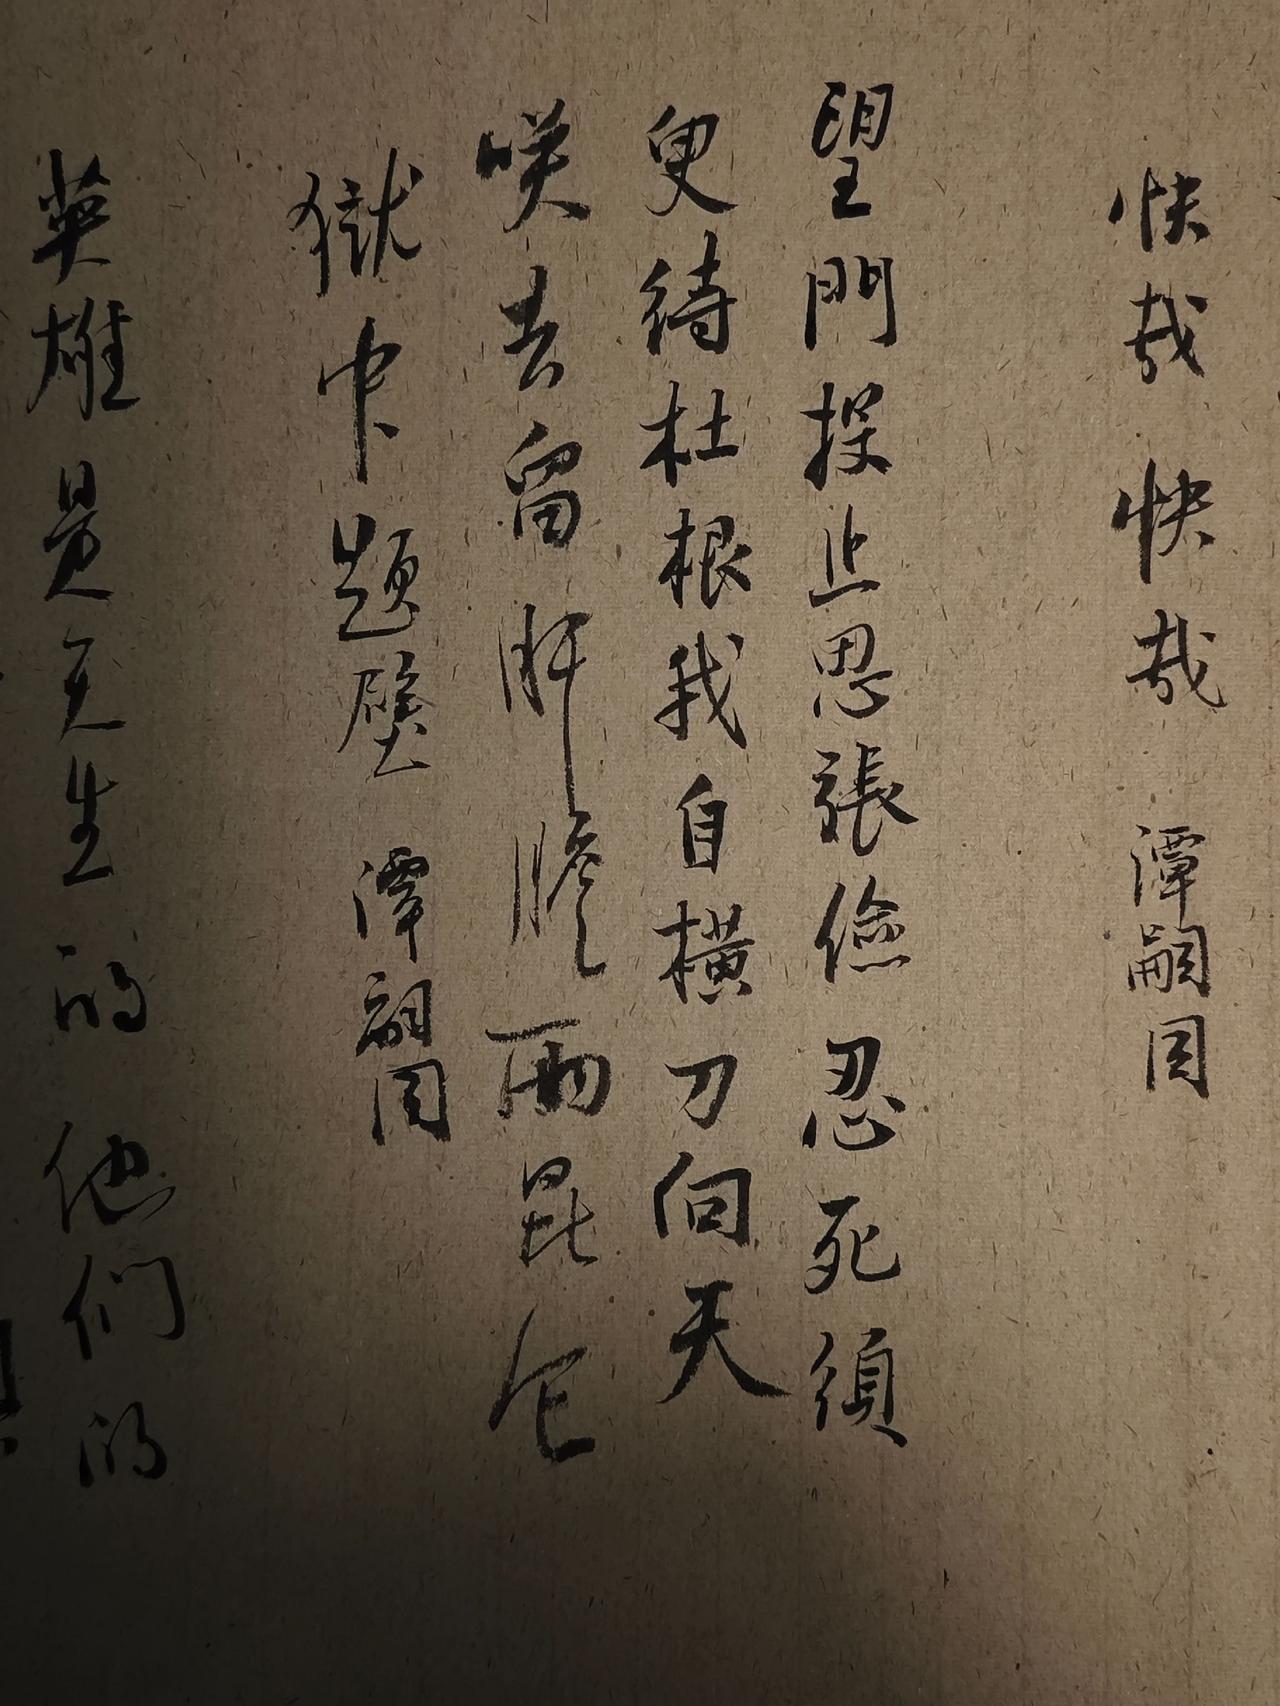 快哉 快哉 譚嗣同
望門投止思張儉忍死須
臾待杜根我自橫刀向天
咲去留肝膽兩昆仑
獄中題壁 譚嗣同
英雄是天生的他们的